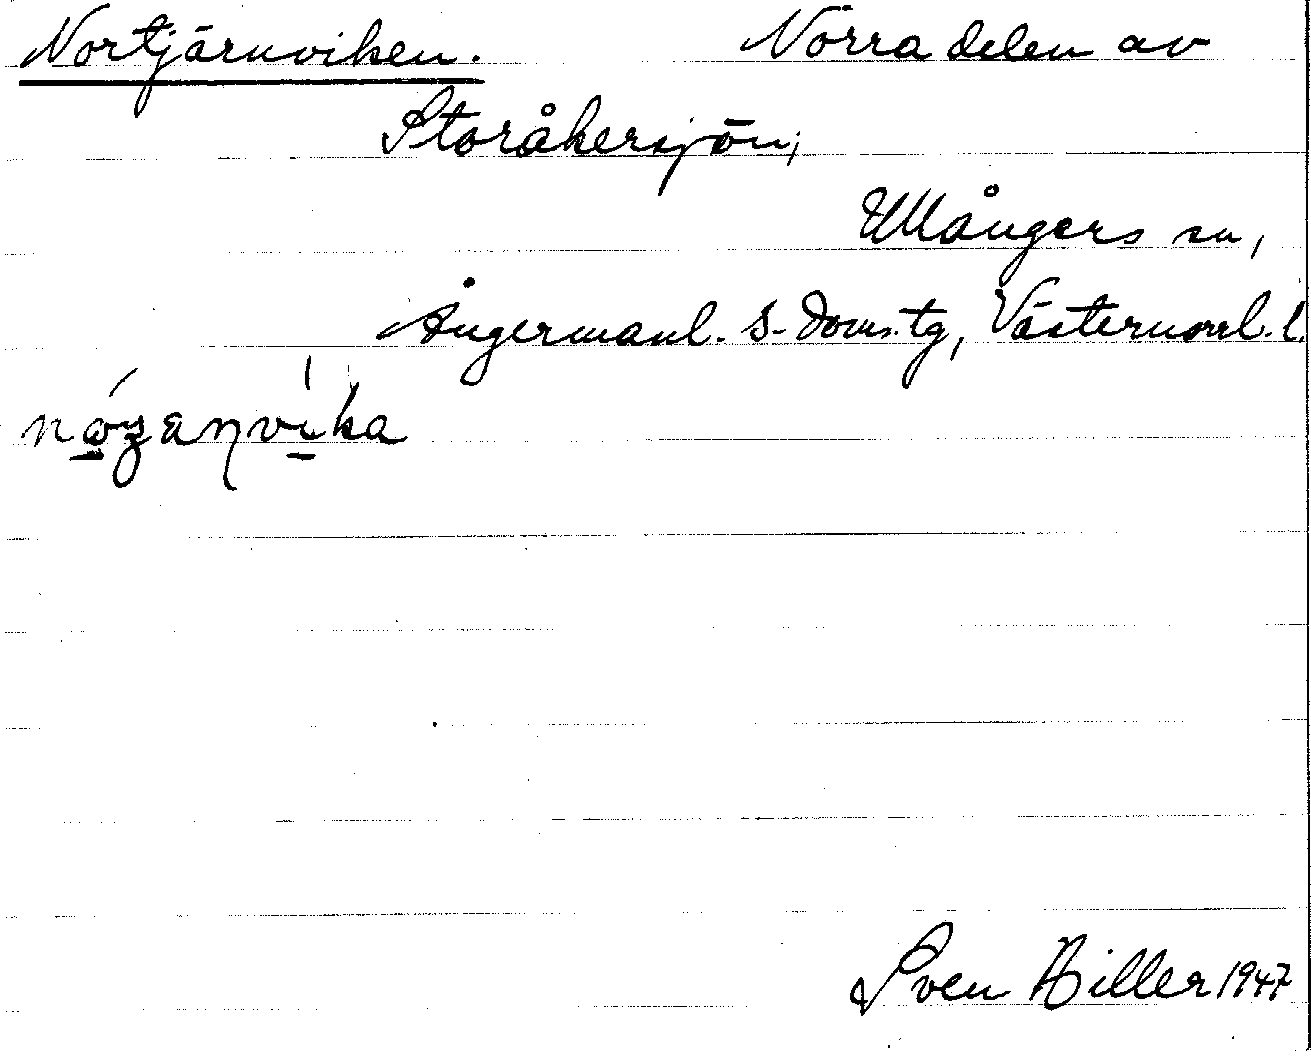 Nortjärnviken. Norra delen av
Storåkersjön,
Ullångers sn,
Ångermanl. s. doms.tg, Västernorrl. l.
Sven Hiller 1947